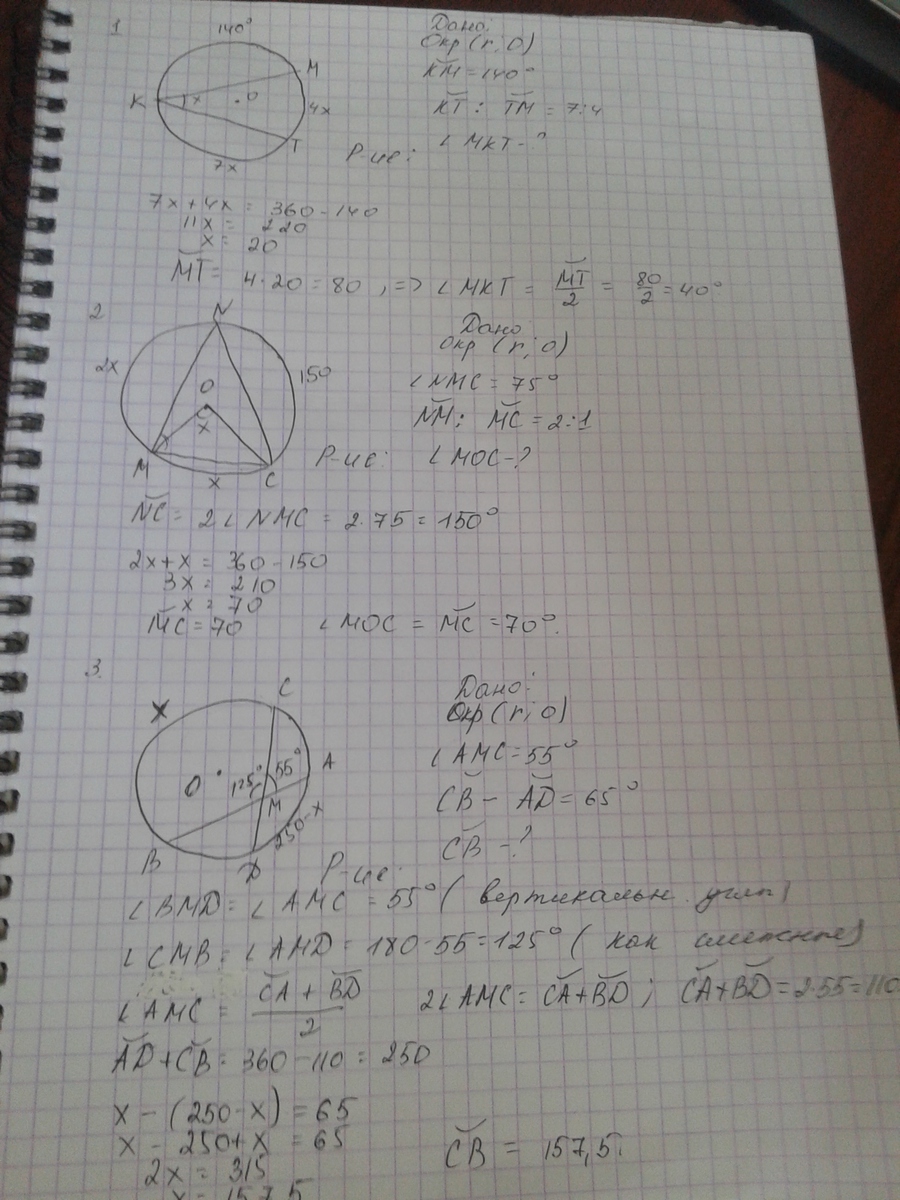 1
140°
K x O M
4x
T
7x
Дано:
Окр (r, O)
K͝M = 140°
K͝T : T͝M = 7:4
∠ MKT - ?
Р-ие:
7x + 4x = 360 - 140
11x = 220
x = 20
M͝T = 4·20 = 80 , => ∠ MKT = M͝T/2 = 80/2 = 40°
2
N
2x
150
O
x
M
x
C
Дано
Окр (r; o)
∠ NMC = 75°
N͝M : M͝C = 2:1
Р-ие: ∠ MOC - ?
N͝C = 2∠ NMC = 2·75 = 150°
2x + x = 360 - 150
3x = 210
x = 70
M͝C = 70 ∠ MOC = M͝C = 70°.
3.
C
X
O
125° 55°
A
M
250-x
B
D
Дано:
Окр (r; o)
∠ AMC = 55°
C͝B - A͝D = 65°
C͝B - ?
Р-ие:
∠ BMD = ∠ AMC = 55° ( вертикальн. углы)
∠ CMB = ∠ AMD = 180 - 55 = 125° ( как смежные)
∠ AMC = C͝A + B͝D/2 2∠ AMC = C͝A + B͝D ; C͝A + B͝D = 2·55 = 110
A͝D + C͝B = 360 - 110 = 250
x - (250 - x) = 65
x - 250 + x = 65
2x = 315
x = 157,5
C͝B = 157,5.